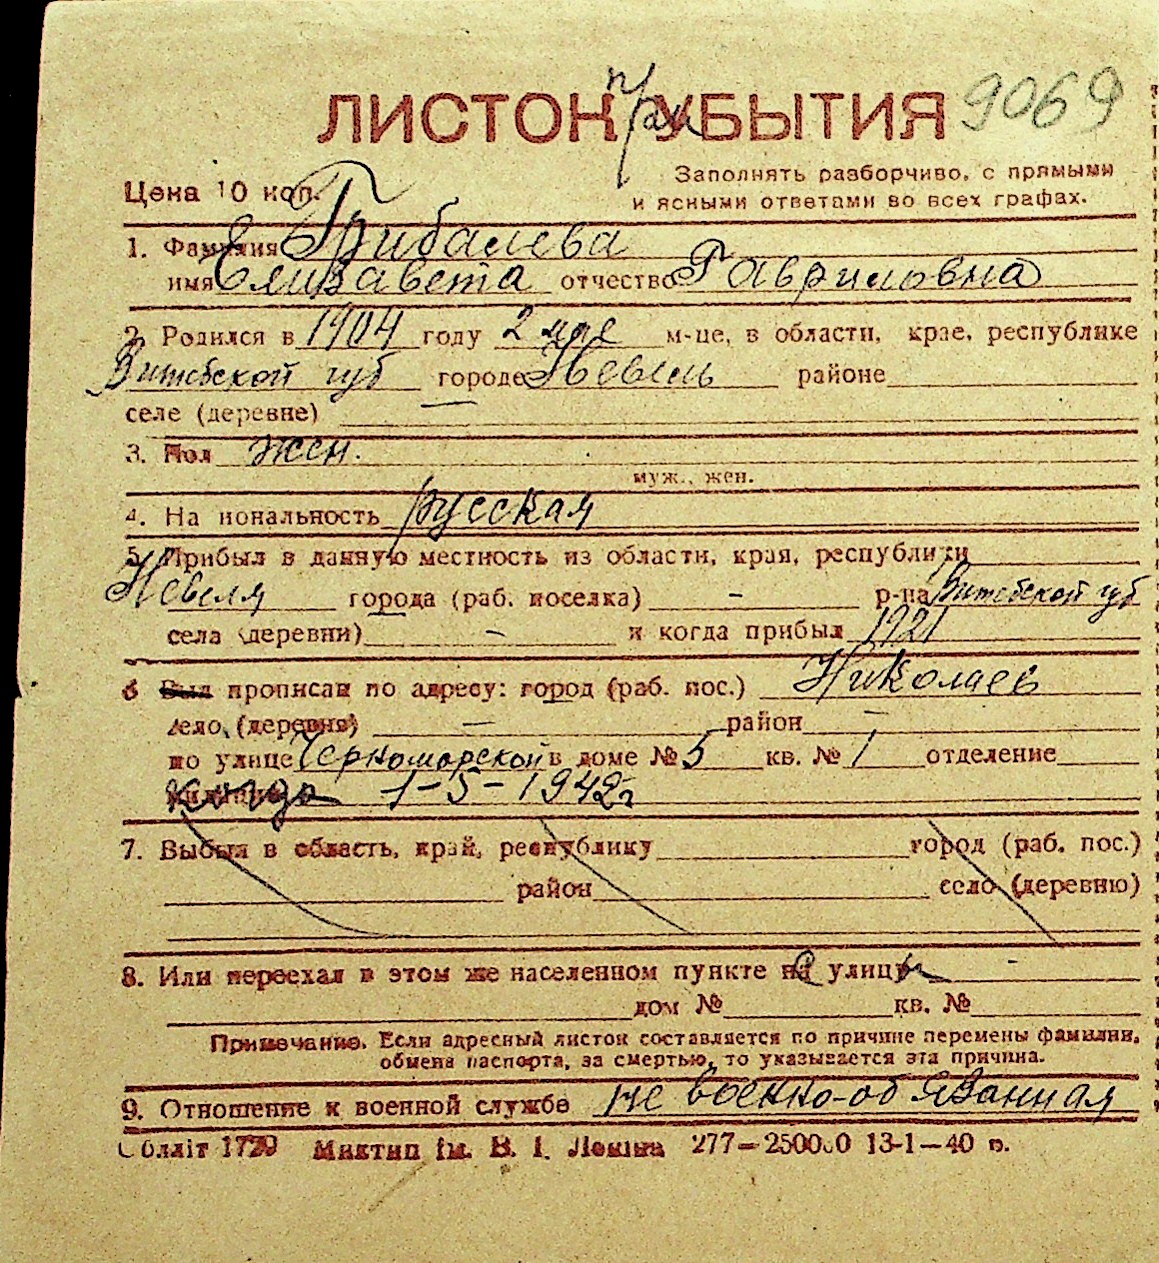 ЛИСТОК при УБЫТИЯ 9069
Цена 10 коп.
Заполнять разборчиво, с прямыми
и ясными ответами во всех графах.
1. Фамилия Грибалева
имя Елизавета отчество Гавриловна
2. Родился в 1904 году 2 мае м-це, в области, крае, республике
Витебской губ городе Невель районе
селе (деревне) —
3. Пол жен.
муж., жен.
4. На иональность русская
5. Прибыл в данную местность из области, края, республики
Невеля города (раб. поселка) - р-на Витебской губ
села (деревни) - и когда прибыл 1921
6 Был прописан по адресу: город (раб. пос.) Николаев
село, (деревня) — район —
по улице Черноморской в доме № 5 кв. № 1 отделение
когда 1-5-1942г
7. Выбыл в область, край, республику город (раб. пос.)
район село (деревню)
8. Или переехал в этом же населенном пункте с улицы -
дом № кв. №
Примечание. Если адресный листок составляется по причине перемены фамилии,
обмена паспорта, за смертью, то указывается эта причина.
9. Отношение к военной службе не военно-обязанная
Облліт 1729 Миктип ім. В. І. Леніна 277—250000 13-1—40 п.